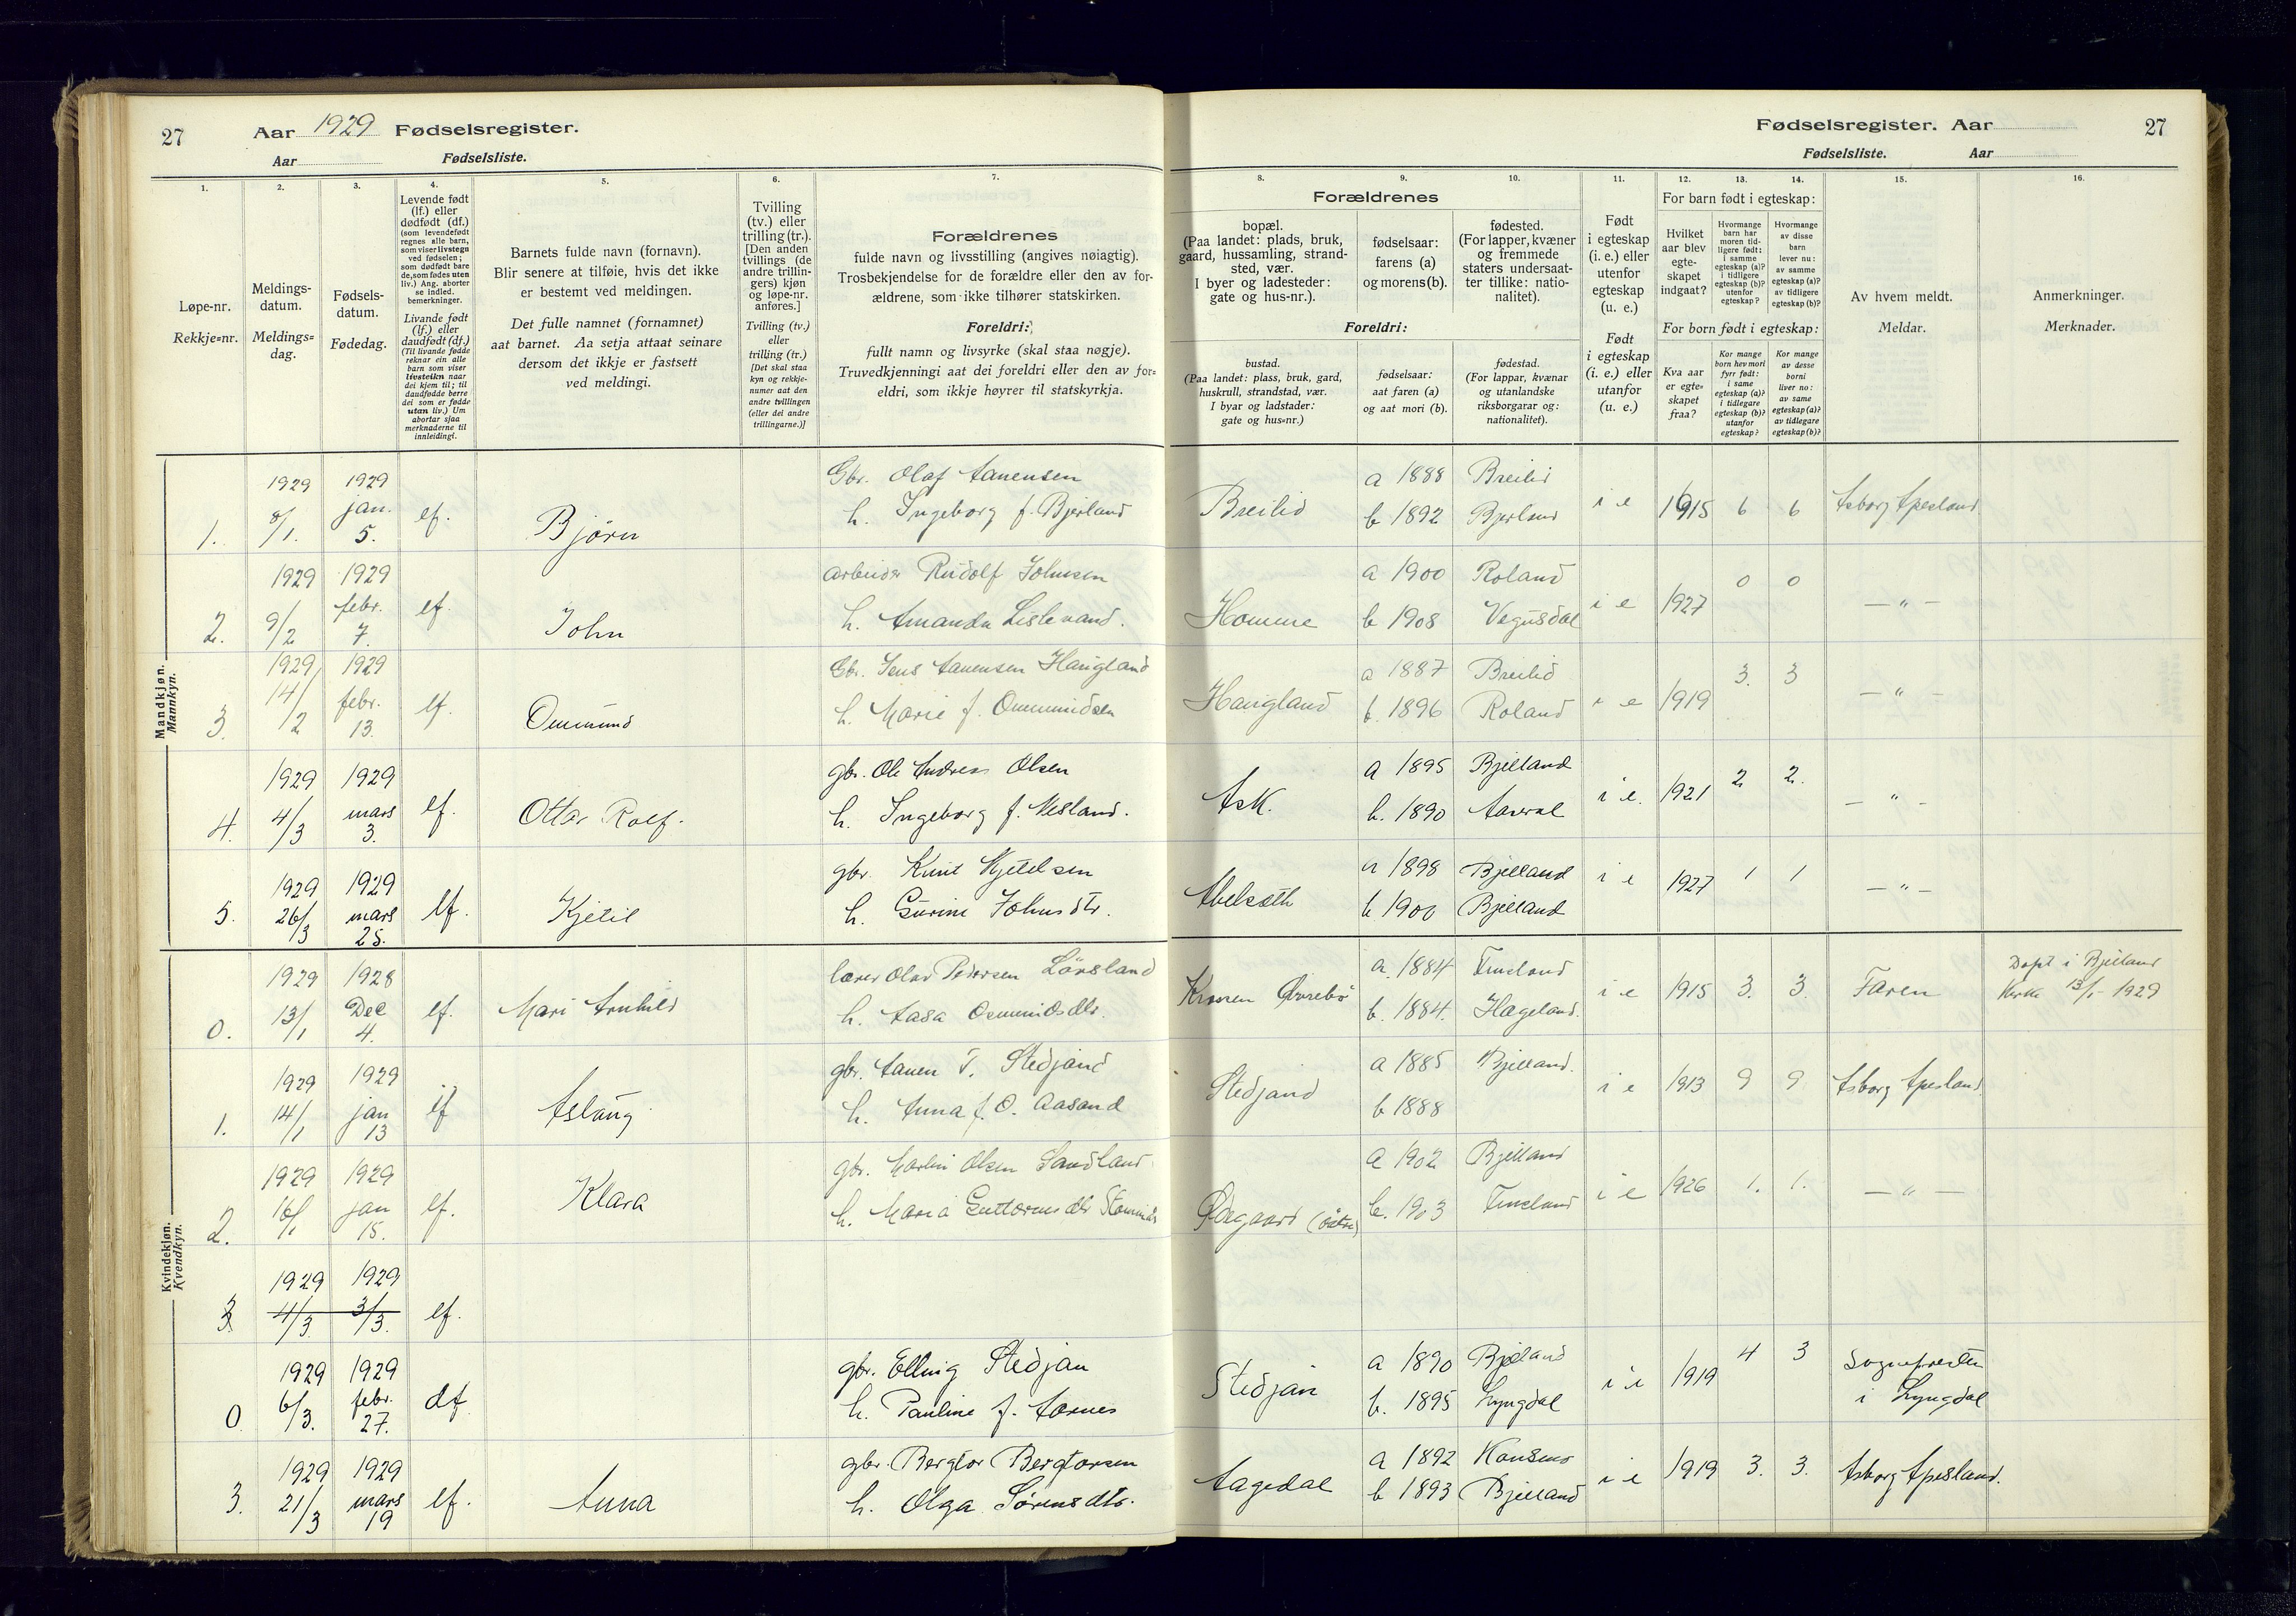 27 Aar 1929 Fødselsregister.
Aar Fødselsliste.
Fødselsregister. Aar 27
Fødselsliste. Aar
1. 2. 3. 4. 5. 6. 7. 8. 9. 10. 11. 12. 13. 14. 15. 16.
Løpe-nr.
Rekkje=nr.
Meldings-
datum.
Meldings=
dag.
Fødsels-
datum.
Fødedag.
Levende født
(lf.) eller
dødfødt (df.)
(som levendefødt
regnes alle barn,
som viser livstegn
ved fødselen;
som dødfødt bare
de, som fødes uten
liv.) Ang. aborter
se indled.
bemerkninger.
Livande født
(lf.) eller
daudfødt (df.)
(Til livande fødde
reknar ein alle
barn som viser
livsteikn naar
dei kjem til; til
daudfødde berre
dei som er fødde
utan liv.) Um
abortar sjaa
merknaderne til
innleidingi.
Barnets fulde navn (fornavn).
Blir senere at tilføie, hvis det ikke
er bestemt ved meldingen.
Det fulle namnet (fornamnet)
aat barnet. Aa setja attaat seinare
dersom det ikkje er fastsett
ved meldingi.
Tvilling
(tv.) eller
trilling (tr.).
[Den anden
tvillings (de
andre trillin-
gers) kjøn
og løpe-nr.
anføres.]
Tvilling (tv.)
eller
trilling (tr.)
[Det skal staa
kyn og rekkje-
numer aat den
andre tvillingen
(eller dei andre
trillingarne.)]
Forældrenes
fulde navn og livsstilling (angives nøiagtig).
Trosbekjendelse for de forældre eller den av for-
ældrene, som ikke tilhører statskirken.
Foreldri:
fullt namn og livsyrke (skal staa nøgje).
Truvedkjenningi aat dei foreldri eller den av for=
eldri, som ikkje høyrer til statskyrkja.
Forældrenes
bopæl.
(Paa landet: plads, bruk,
gaard, hussamling, strand-
sted, vær.
I byer og ladesteder:
gate og hus-nr.).
fødselsaar:
farens (a)
og morens (b).
fødested.
(For lapper, kvæner
og fremmede
staters undersaat-
ter tillike: natio-
nalitet).
Foreldri:
bustad.
(Paa landet: plass, bruk, gard,
huskrull, strandstad, vær.
I byar og ladstader:
gate og hus=nr.)
fødselsaar:
aat faren (a)
og aat mori (b).
fødestad.
(For lappar, kvænar
og utanlandske
riksborgarar og:
nationalitet).
Født
i egteskap
(i. e.) eller
utenfor
egteskap
(u. e.)
Født
i egteskap
(i. e.) eller
utanfor
(u. e.)
For barn født i egteskap:
Hvilket
aar blev
egte-
skapet
indgaat?
Hvormange
barn har
moren tid-
ligere født:
i samme
egteskap (a)?
i tidligere
egteskap (b)?
utenfor
egteskap?
Hvormange
av disse
barn
lever nu:
av samme
egteskap (a)?
av tidligere
egteskap (b)?
For born født i egteskap:
Kva aar
er egte=
skapet
fraa?
Kor mange
born hev mori
fyrr født:
i same
egteskap (a)?
i tidlegare
egteskap (b)?
utanfor
egteskap?
Kor mange
av desse
borni
liver no:
av same
egteskap (a)?
av tidlegare
egteskap (b)?
Av hvem meldt.
Meldar.
Anmerkninger.
Merknader.
Mandkjøn.
Mannkyn.
1. 1929 8/1. 1929 jan. 5. lf. Bjørn
Gbr. Olaf Aanensen
h. Ingeborg f. Bjerland
Breilid a 1888 Breilid
b 1892 Bjerland i e 1915 6 6 Asborg Apesland
2. 1929 9/2 1929 febr. 7. lf. John
arbeider Rudolf Johnsen
h. Amanda Lislevand.
Homme a 1900 Roland
b 1908 Vegusdal i e 1927 0 0 — " —
3. 1929 14/2 1929 febr. 13. lf. Ommund
Gbr. Jens Aanensen Haugland
h. Marie f. Ommundsen
Haugland a 1887 Breilid
b. 1896 Roland i e 1919 3. 3 — " —
4. 1929 4/3 1929 mars 3. lf. Ottar Rolf.
gbr. Ole Andreas Olsen
h. Ingeborg f. Nesland.
Ask. a 1895 Bjelland
b. 1890 Aaseral i e. 1921 2 2. — " —
5. 1929 26/3 1929 mars 25. lf. Kjetil
gbr. Knut Kjetelsen
h. Gurine Johnsdtr.
Abelseth a 1898 Bjelland
b 1900 Bjelland i e 1927 1 1 — " —
Kvindekjøn.
Kvendkyn.
0. 1929 13/1 1928 Dec 4. lf. Mari Arnhild
lærer Olav Pedersen Lövsland
h. Aasa Osmundsdtr.
Krossen Øvrebö a. 1884 Finsland
b. 1884. Hægeland. i e 1915 3. 3. Faren Døpt i Bjelland
Kirke 13/1 - 1929
1. 1929 14/1 1929 jan 13 lf Aslaug
gbr. Aanen T. Stedjand
h. Anna f. O. Aasand
Stedjand a 1885 Bjelland.
b 1888 i e 1913 9 9 Asborg Apesland
2. 1929 16/1 1929 jan 15. lf. Klara
gbr. Martin Olsen Sandland
h. Maria Guttormsdtr
Ødegaard (östre) a 1902 Bjelland
b. 1903 Finsland i e 1926 1. 1. — " —
3 1929 4/3. 1929 3/3. lf.
0 1929 6/3. 1929 febr. 27. df
gbr. Elling Stedjan
h. Pauline f. Aarnes
Stedjan a 1890 Bjelland
b. 1895 Lyngdal i e 1919 4 3 Sognepresten
i Lyngdal
3. 1929 21/3 1929 mars 19 lf. Anna
gbr. Bergtor Bergtorsen
h. Olga Sørensdtr.
Aagedal a 1892 Konsmo
b 1893 Bjelland i e 1919 3. 3. Asborg Apesland.